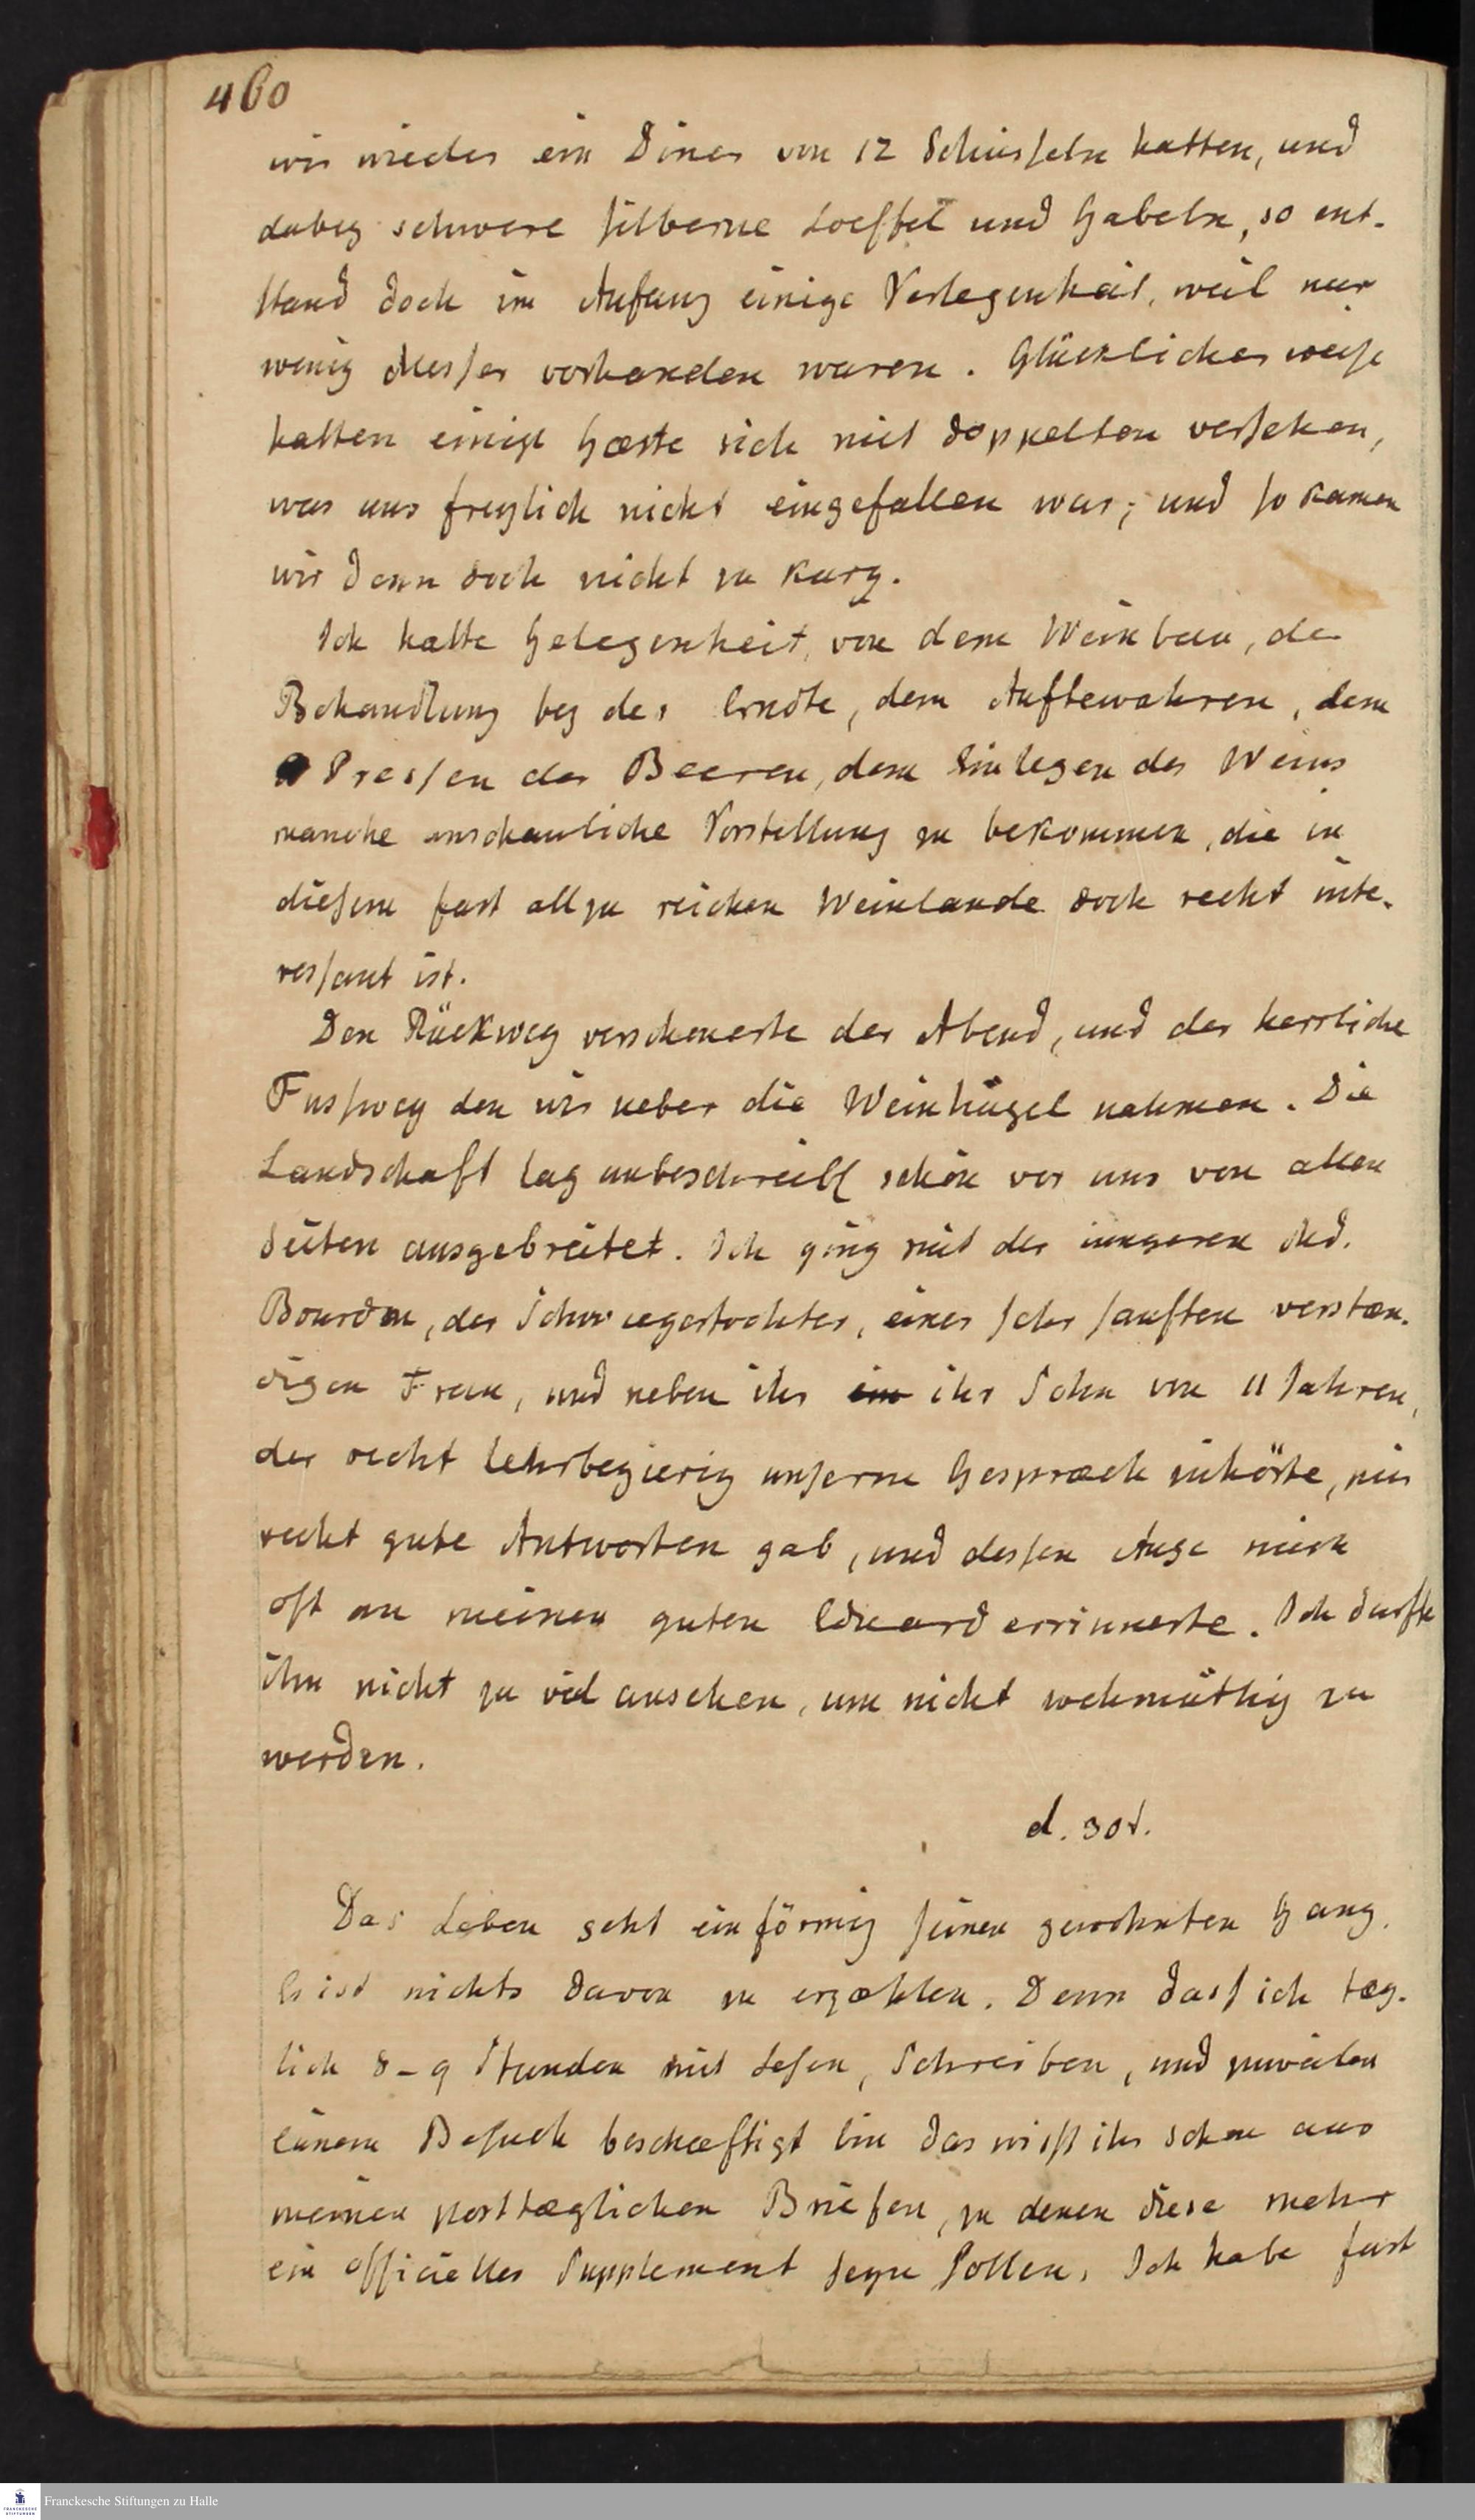 460
wir wieder ein Diner von 12 Schüsseln hatten, und
dabey schwere silberne Loeffel und Gabeln, so ent-
stand doch im Anfang einige Verlegenheit, weil nur
wenig Messer vorhanden waren. Glücklicher weise
hatten einige Gæste sich mit doppelten versehen,
was uns freylich nicht eingefallen war; und so kamen
wir denn doch nicht zu kurz.
Ich hatte Gelegenheit, von dem Weinbau, der
Behandlung bey der Erndte, dem Aufbewahren, dem
Pressen der Beeren, dem Einlegen des Weins
manche anschauliche Vorstellung zu bekommen, die in
diesem fast allzu reichen Weinlande doch recht inte-
ressant ist.
Den Rückweg verschonerte der Abend, und der herrliche
Fussweg den wir ueber die Weinhügel nahmen. Die
Landschaft lag unbeschreibl schön vor uns von allen
Seiten ausgebreitet. Ich ging mit der iungeren Md.
Bourdon, der Schwiegertochter, einer sehr sanften verstæn-
digen Frau, und neben ihr ein ihr Sohn von 11 Jahren,
der recht lehrbegierig unserm Gespræch zuhörte, mir
recht gute Antworten gab, und dessen Auge mich
oft an meinen guten Eduard errinnerte. Ich durfte
ihn nicht zu viel ansehen, um nicht wehmüthig zu
werden.
d. 30t.
Das Leben geht einförmig seinen gewohnten Gang.
Es ist nichts davon zu erzæhlen. Denn dass ich tæg-
lich 8-9 Stunden mit Lesen, Schreiben, und zuweilen
einem Besuch beschæftigt bin das wisst ihr schon aus
meinen posttæglichen Briefen, zu denen diese mehr
ein officielles Supplement seyn sollen. Ich habe fast
Franckesche Stiftungen zu Halle